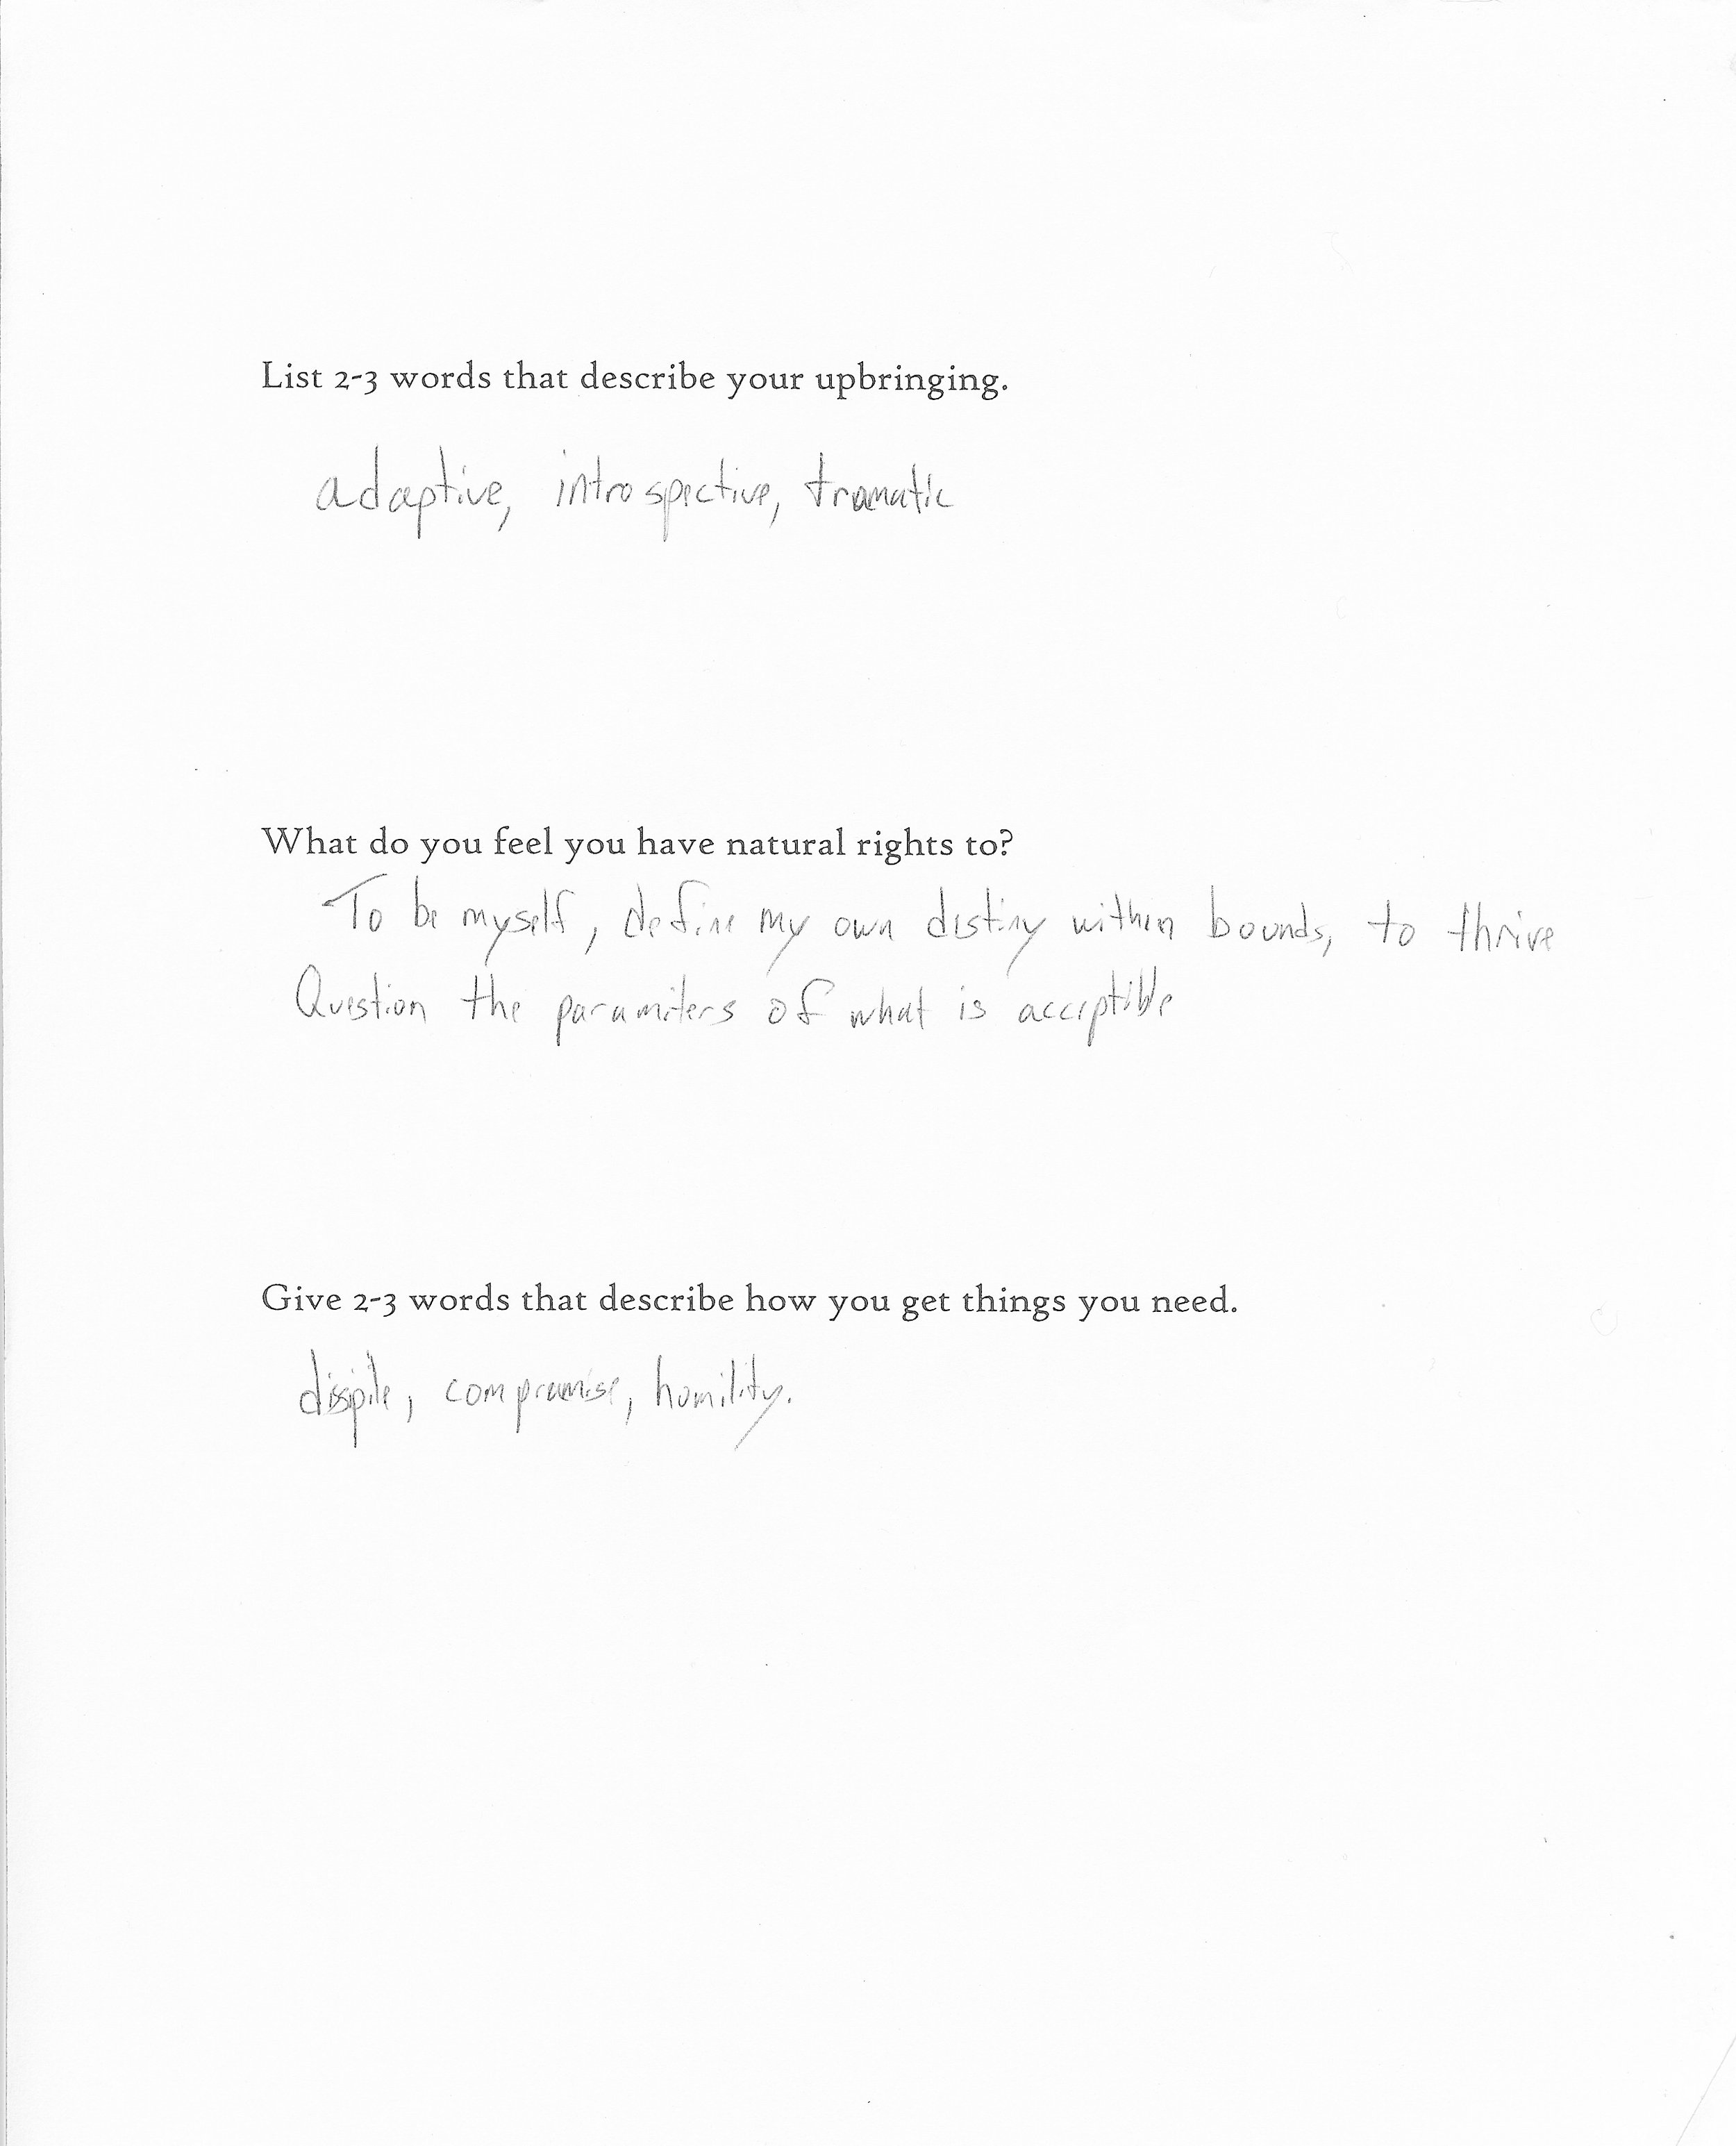 List 2-3 words that describe your upbringing.
adaptive, introspective, tramatic
What do you feel you have natural rights to?
To be myself, define my own distiny within bounds, to thrive
Question the paramiters of what is acceptible
Give 2-3 words that describe how you get things you need.
compramise, humility.